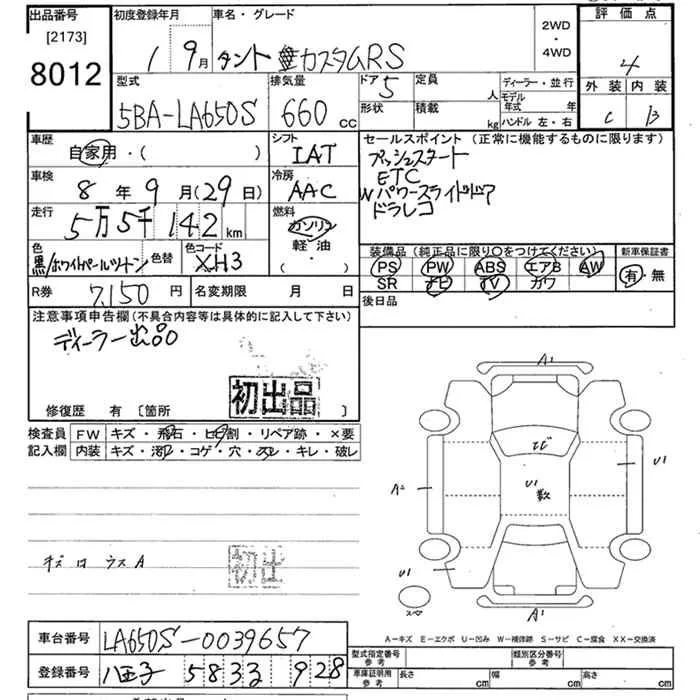 出品番号
[2173]
8012
初度登録年月
1 9月
車名・グレード
タント カスタムRS
2WD
・
4WD
評価点
4
外装 内装
C B
型式
5BA-LA650S
排気量
660 cc
ドア 5
定員 人
形状
積載 kg
ディーラー・並行
モデル年式 年
ハンドル 左・右
車歴
自家用・( )
シフト
IAT
車検
8年9月(29日)
冷房
AAC
走行
5万5千142km
燃料
ガソリン
軽・油
( ・ )
色
黒/ホワイトパールツートン
色替
色コード
XH3
セールスポイント (正常に機能するものに限ります)
プッシュスタート
ETC
W パワースライドドア
ドラレコ
装備品 (純正品に限り○をつけてください)
PS PW ABS エアB AW
SR ナビ TV ガワ
新車保証書
有・無
後日品
R券 7,150円
名変期限 月 日
注意事項申告欄 (不具合内容等は具体的に記入して下さい)
ディーラー出品
初出品
修復歴 有 [箇所 ]
検査員記入欄
FW キズ・飛石・ヒビ割・リペア跡・×要
内装 キズ・汚レ・コゲ・穴・スレ・キレ・破レ
初出
A1
A2
U1
ナビ
U1
数
U1
スペア
A1
A-キズ E-エクボ U-凹み W-補修跡 S-サビ C-腐食 XX-交換済
車台番号
LA650S-0039657
登録番号
八王子 583 ミ 928
型式指定番号 参考
類別区分番号 参考
車庫証明用 参考
長さ cm
幅 cm
高さ cm